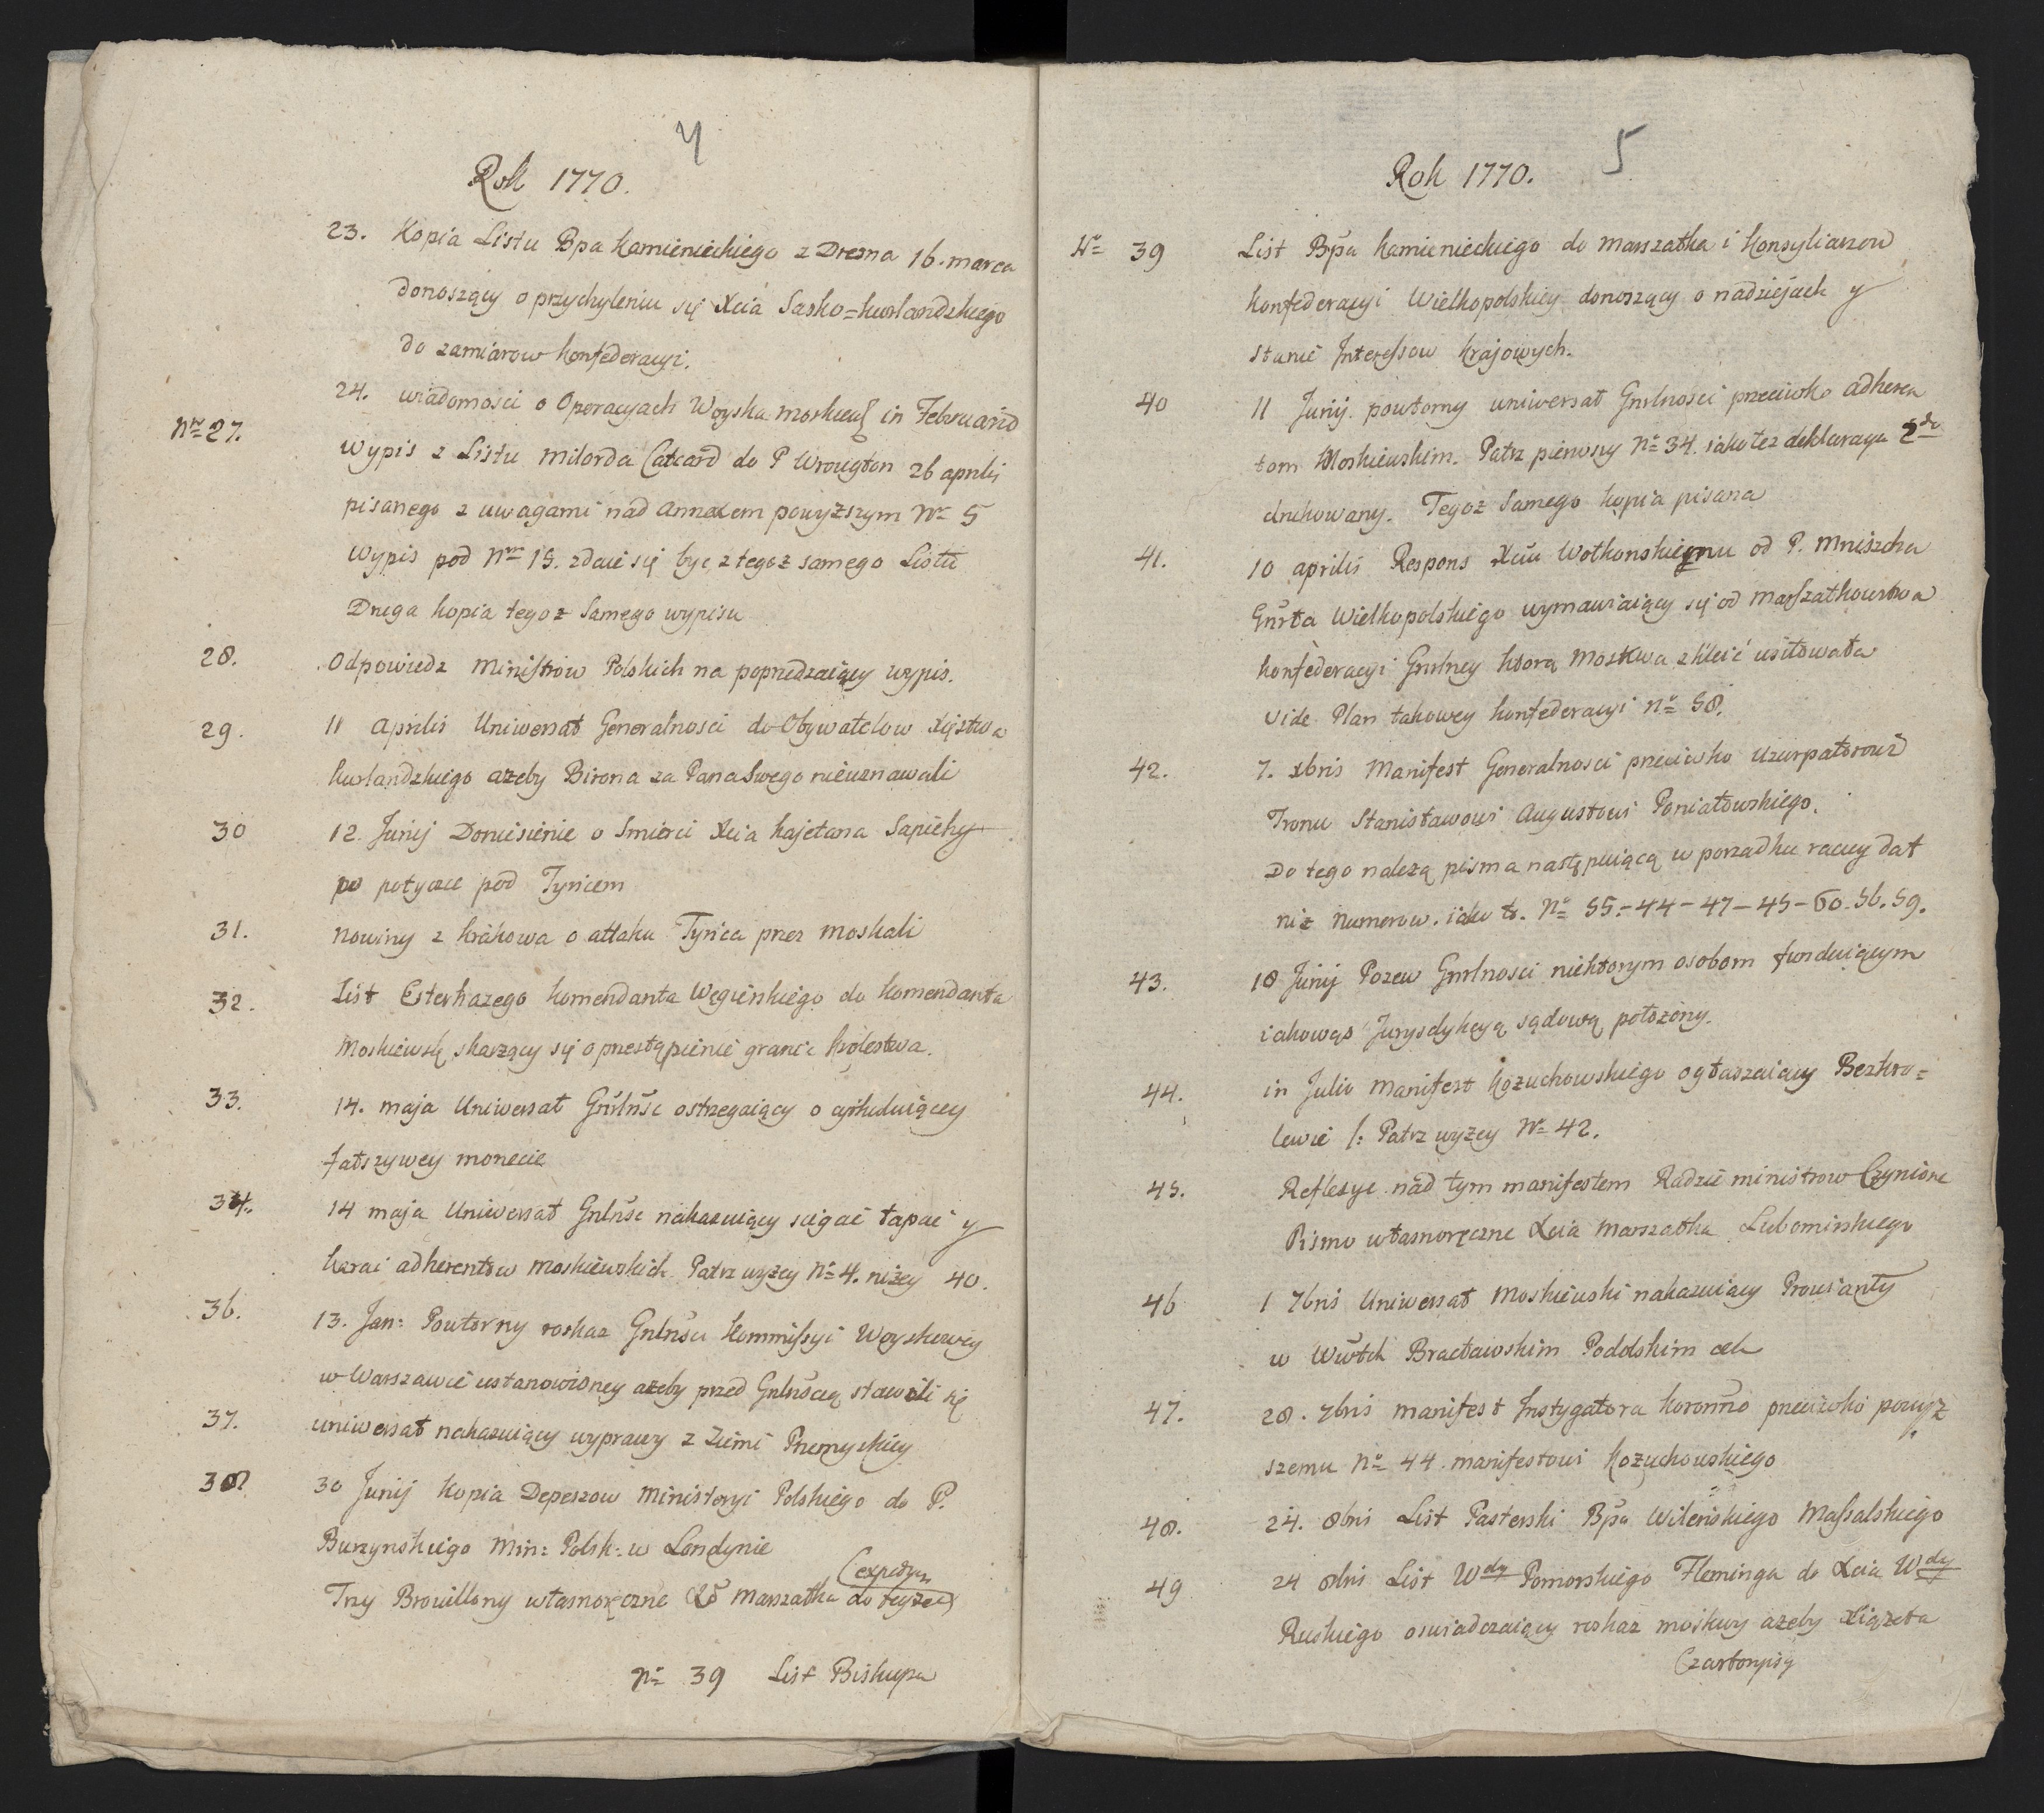 4
Rok 1770.
23. Kopia Listu Bpa Kamienieckiego z Drezna 16. marca
donoszący o przychyleniu się Xcia Sasko=Kurlandzkiego
do zamiarow konfederacyi.
24. wiadomosci o Operacyach Woyska moskiew in Februario
Nro 27. Wypis z Listu Milorda Catcard do P Wrougton 26 aprilis
pisanego z uwagami nad Annexem powyższym No 5
Wypis pod Nro 15. zdaie się być z tegoż samego Listu
Druga kopia tegoż Samego wypisu
28. Odpowiedz Ministrow Polskich na poprzedzaiący wypis.
29. 11 Aprilis Uniwersał Generalnosci do Obywatelow Xięstwa
Kurlandzkiego ażeby Birona za Pana Swego nieuznawali
30 12. Junij Doniesienie o Smierci Xcia Kajetana Sapiehy
po potyczce pod Tyńcem
31. Nowiny z Krakowa o attaku Tyńca przez moskali
32. List Esterhazego Komendanta Węgierskiego do Komendanta
Moskiewsk skarżący się o przestąpienie granic Królestwa.
33. 14. maja Uniwersał Gnrlnśc ostrzegaiący o cyrkuluiącey
fałszywey monecie
34. 14 maja Uniwersał Gnlnśc nakazuiący scigać łapać y
karać adherentow moskiewskich. Patrz wyżey No 4. niżey 40.
36. 13. Jan: Powtorny roskaz Gnlnści Kommissyi Woyskowey
w Warszawie ustanowioney ażeby przed Gnlnścią stawili się
37. Uniwersał nakazuiący wyprawy z Ziemi Przemyskiey
38 30 Junij Kopia Depeszow Ministeryi Polskiego do P.
Burzynskiego Min: Polsk: w Londynie
(expedycyi
Trzy Brouillony własnoręczne Xo Marszałka do teyże
No 39 List Biskupa
5
Rok 1770.
No 39 List Bpa Kamienieckiego do marszałka i Konsyliarzow
Konfederacyi Wielkopolskiey donoszący o nadziejach y
stanie Interessow Krajowych.
40 11 Junij. powtorny uniwersał Gnrlnosci przeciwko adheren
tom Moskiewskim. Patrz pierwszy No 34. iako też deklaracya 2do
drukowany. Tegoż Samego kopia pisana
41. 10 aprilis Respons Xciu Wołkonskiemu od P. Mniszcha
Gnrła Wielkopolskiego wymawiaiący się od marszałkowstwa
konfederacyi Gnrlney ktorą Moskwa zkleić usiłowała
vide Plan takowey konfederacyi No 58.
42. 7. xbris Manifest Generalnosci przeciwko Uzurpatorowi
Tronu Stanisławowi Augustowi Poniatowskiego.
Do tego należą pisma następuiącą w porzadku raczey dat
niż Numerow. iako to. No 55.-44-47-45-60.56.59.
43. 18 Junij Pozew Gnrlnosci niektorym osobom funduiącym
iakowąś Jurysdykcyą sądową położony.
44. in Julio Manifest Kożuchowskiego ogłaszaiący Bezkro=
lewie /: Patrz wyżey No 42.
45. Reflexye nad tym manifestem Radzie ministrow Czynione
Pismo własnoręczne Xcia Marszałka Lubomirskiego
46 1 7bris Uniwersał Moskiewski nakazuiący Prowianty
w Wwtch Bracławskim Podolskim etc
47. 28. 7bris manifest Instygatora Koronno przeciwko powyż
szemu No 44. manifestowi Kożuchowskiego
48. 24. 8bris List Pasterski Bpa Wileńskiego Massalskiego
49 24 8bris List Wdy Pomorskiego Fleminga do Xcia Wdy
Ruskiego oswiadczaiący roskaz moskwy ażeby Xiążęta
Czartoryscy